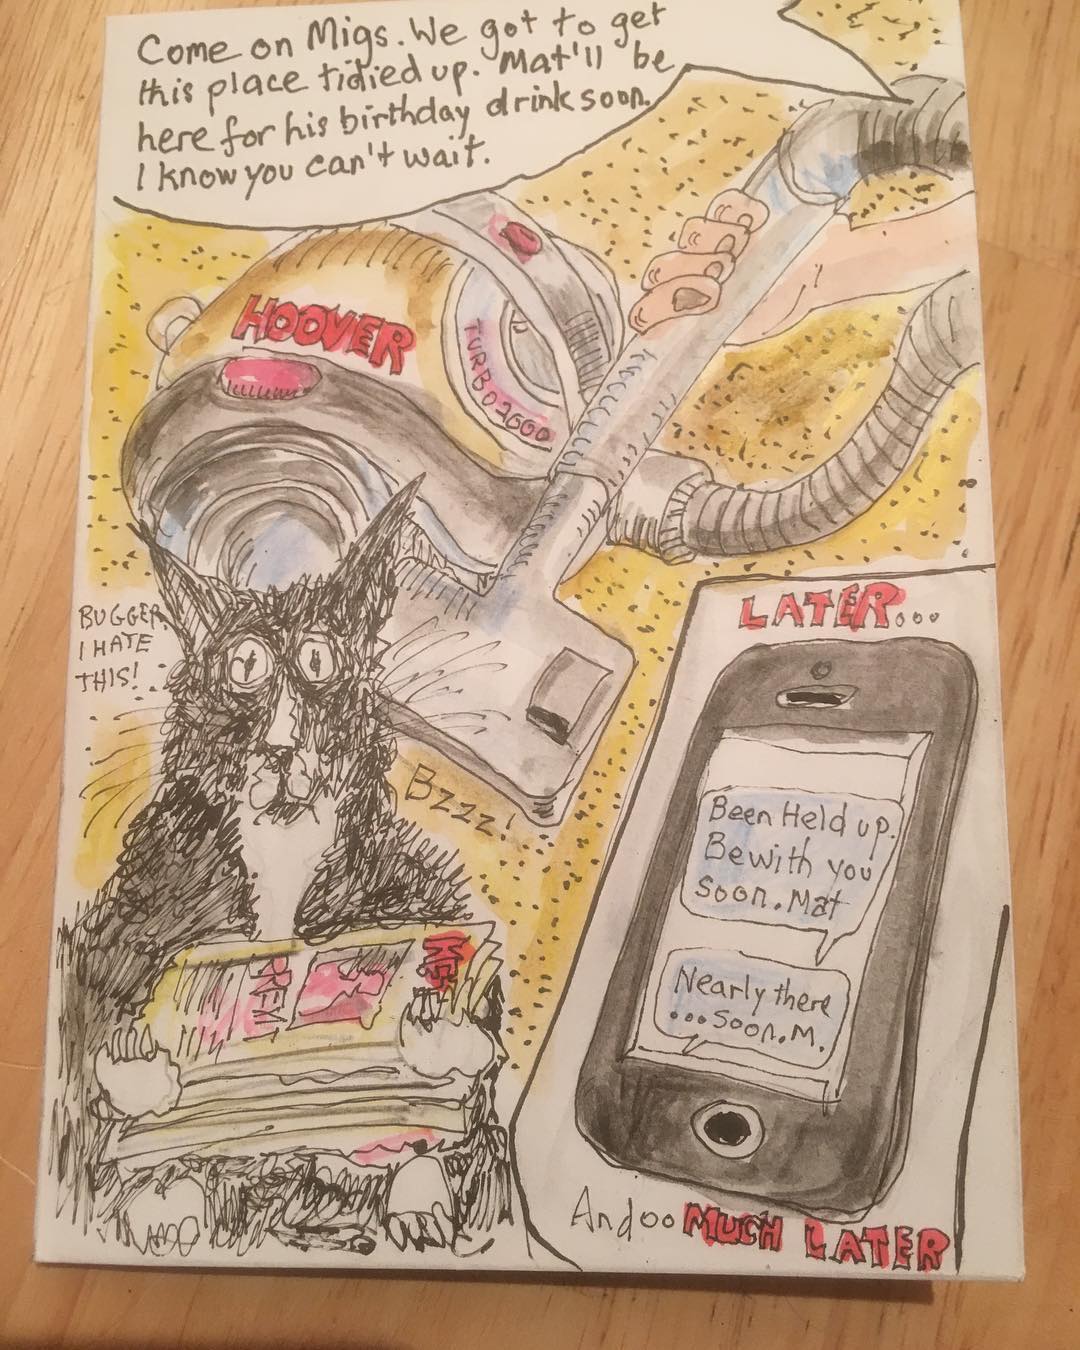 Come on Migs. We got to get
this place tidied up. Mat'll be
here for his birthday drink soon.
I know you can't wait.
HOOVER
TURBO 2000
BUGGER,
I HATE
THIS!
Bzzz!
LATER...
Been Held up.
Be with you
soon. Mat
Nearly there
...soon. M.
And oo MUCH LATER